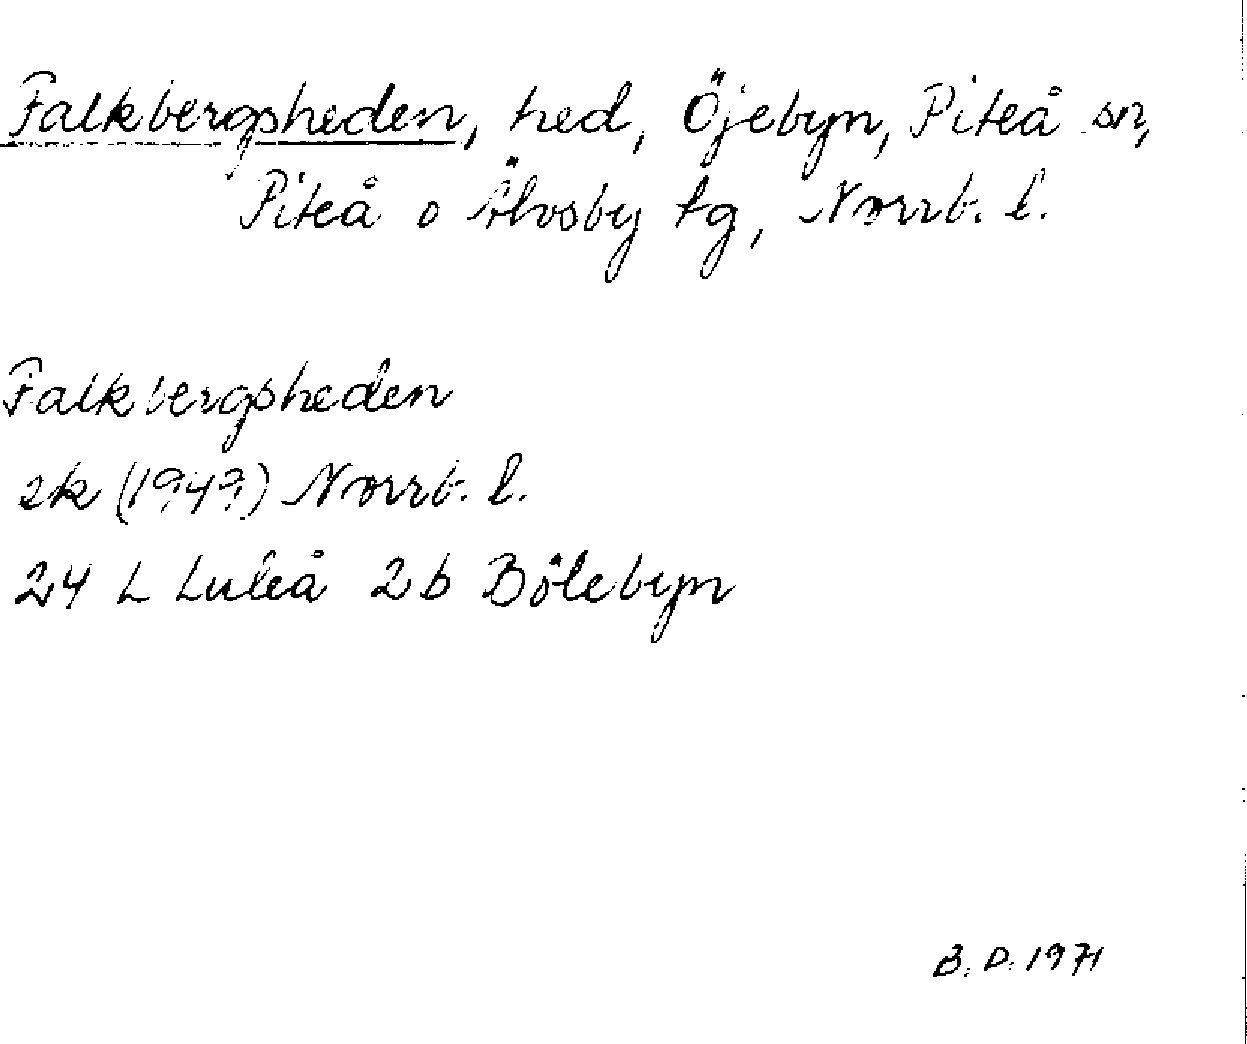 Falkbergsheden, hed, Öjebyn, Piteå sn,
Piteå o Älvsby tg, Norrb. l.
Falkbergsheden
ek (1949) Norrb. l.
24 L Luleå 2b Bölebyn
B. D. 1971